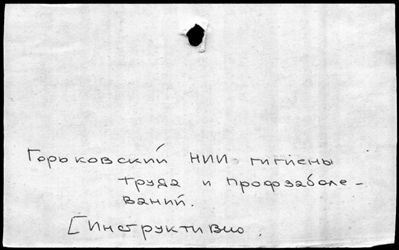 Горьковский НИИ гигиены
труда и профзаболе-
ваний.
[Инструктивно.